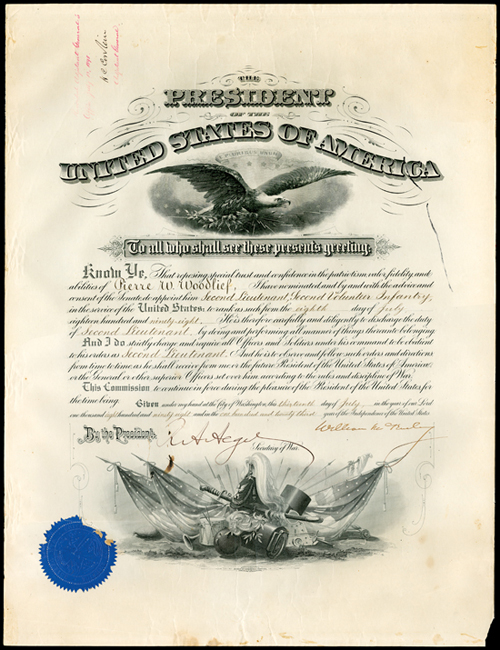 THE
PRESIDENT
OF THE
UNITED STATES OF AMERICA
To all who shall see these presents greeting:
Know Ye, That reposing special trust and confidence in the patriotism, valor, fidelity and
abilities of Pierre W. Woodlief, I have nominated, and by and with the advice and
consent of the Senate do appoint him Second Lieutenant, Second Volunteer Infantry,
in the service of the United States: to rank as such from the eighth day of July
eighteen hundred and ninety-eight. He is therefore carefully and diligently to discharge the duty
of Second Lieutenant by doing and performing all manner of things thereunto belonging.
And I do strictly charge and require all Officers and Soldiers under his command to be obedient
to his orders as Second Lieutenant. And he is to observe and follow such orders and directions
from time to time, as he shall receive from me or the future President of the United States of America,
or the General or other superior Officers set over him, according to the rules and discipline of War.
This Commission to continue in force during the pleasure of the President of the United States for
the time being.
Given under my hand at the city of Washington, this thirteenth day of July in the year of our Lord
one thousand eight hundred and ninety eight and in the one hundred and twenty third year of the Independence of the United States.
By the President:
R. A. Alger
William McKinley
Secretary of War.